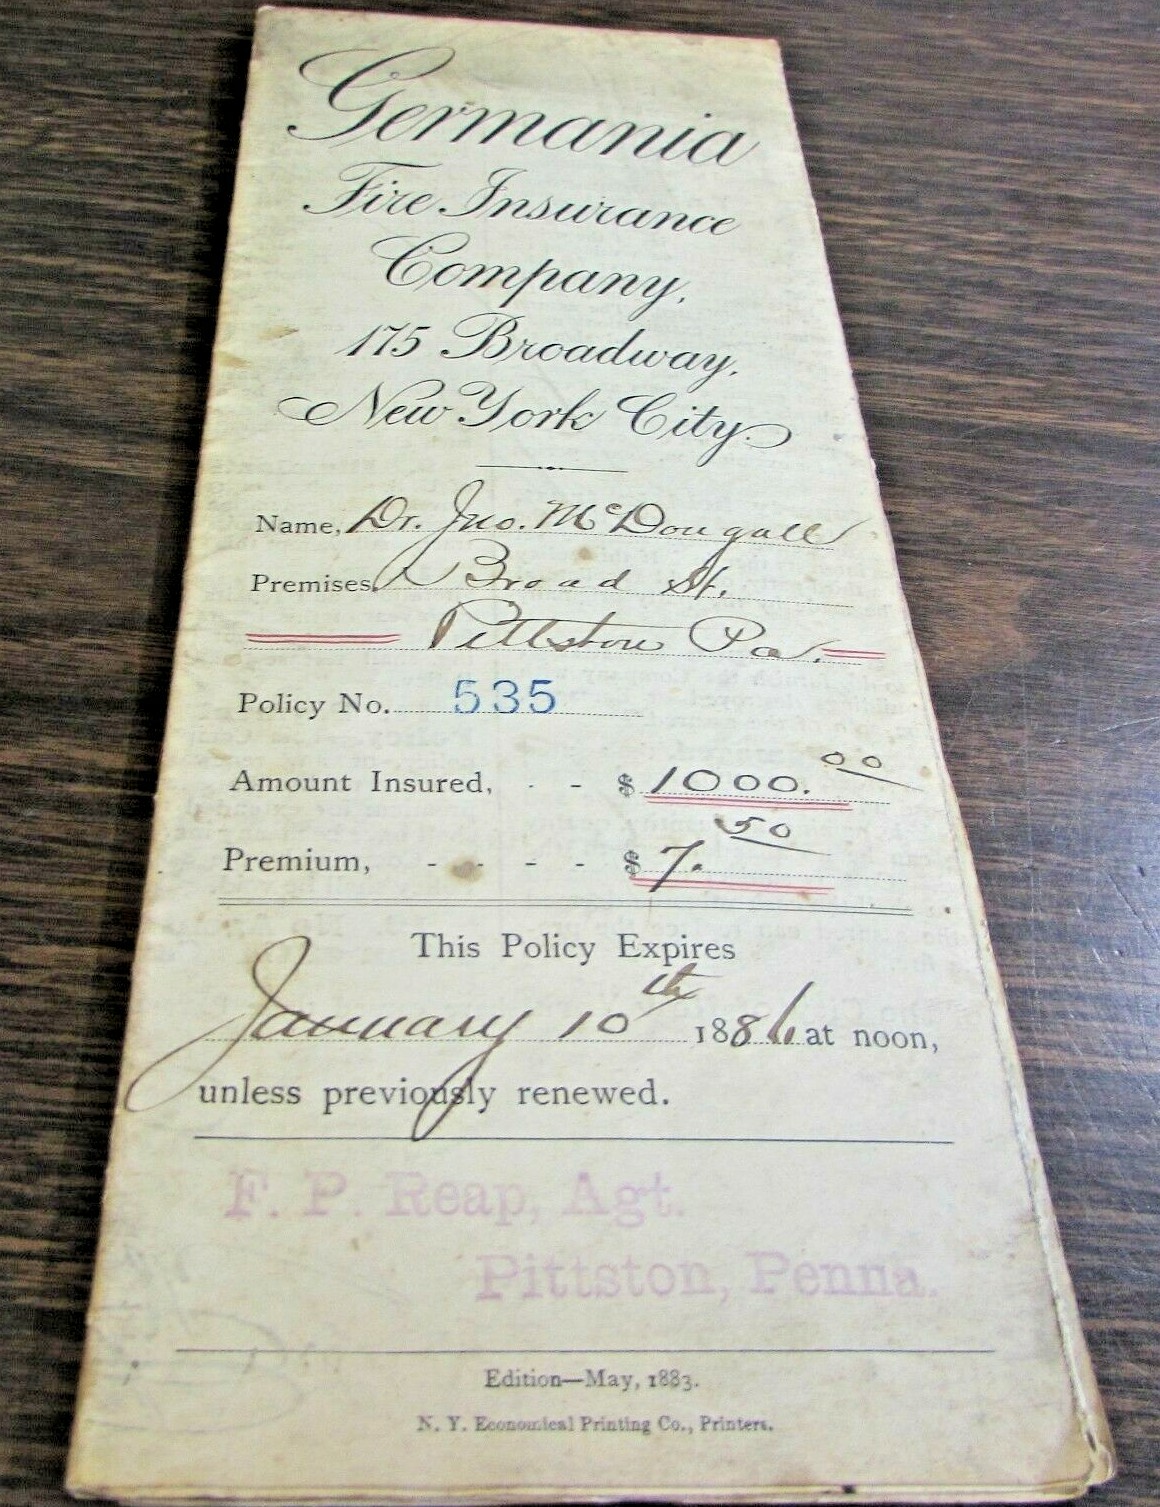 Germania
Fire Insurance
Company,
175 Broadway,
New York City.
Name, Dr. Jno. McDougall
Premises, Broad St.
Pittston Pa.
Policy No. 535
Amount Insured, - - $ 1000.00
Premium, - - - - $ 7.50
This Policy Expires
January 10th 1886 at noon,
unless previously renewed.
F. P. Reap, Agt.
Pittston, Penna.
Edition—May, 1883.
N. Y. Economical Printing Co., Printers.